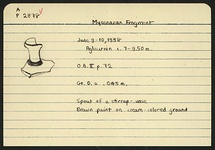 A
P 2878
Mycenaean Fragment
June 9-10, 1938
O.A. III p. 72
Spout of a stirrup-vase
Brown paint on cream-colored ground